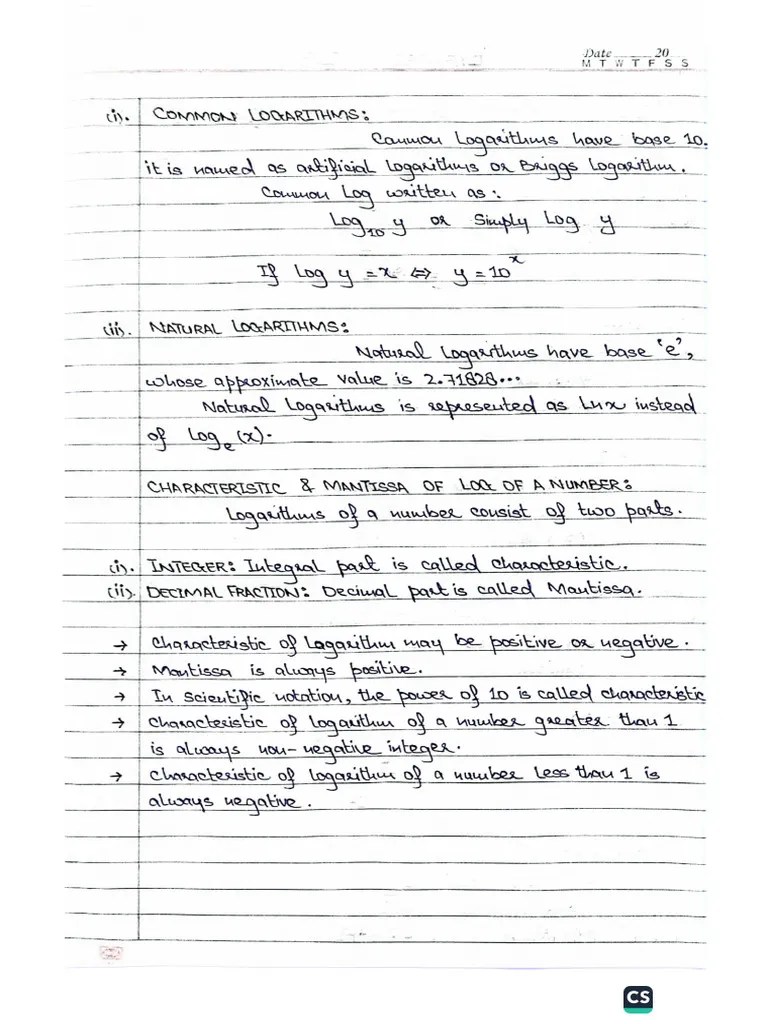 Date 20
M T W T F S S
(i). COMMON LOGARITHMS:
Common Logarithms have base 10.
it is named as artificial Logarithms or Briggs Logarithm.
Common Log written as:
Log₁₀ y or Simply Log y
If Log y = x ⇔ y = 10ˣ
(ii). NATURAL LOGARITHMS:
Natural Logarithms have base 'e',
whose approximate value is 2.71828...
Natural Logarithms is represented as Lnx instead
of Logₑ(x).
CHARACTERISTIC & MANTISSA OF LOG OF A NUMBER:
Logarithms of a number consist of two parts.
(i). INTEGER: Integral part is called characteristic.
(ii). DECIMAL FRACTION: Decimal part is called Mantissa.
→ Characteristic of Logarithm may be positive or negative.
→ Mantissa is always positive.
→ In scientific notation, the power of 10 is called characteristic
→ Characteristic of Logarithm of a number greater than 1
is always non-negative integer.
→ Characteristic of Logarithm of a number Less than 1 is
always negative.
CS